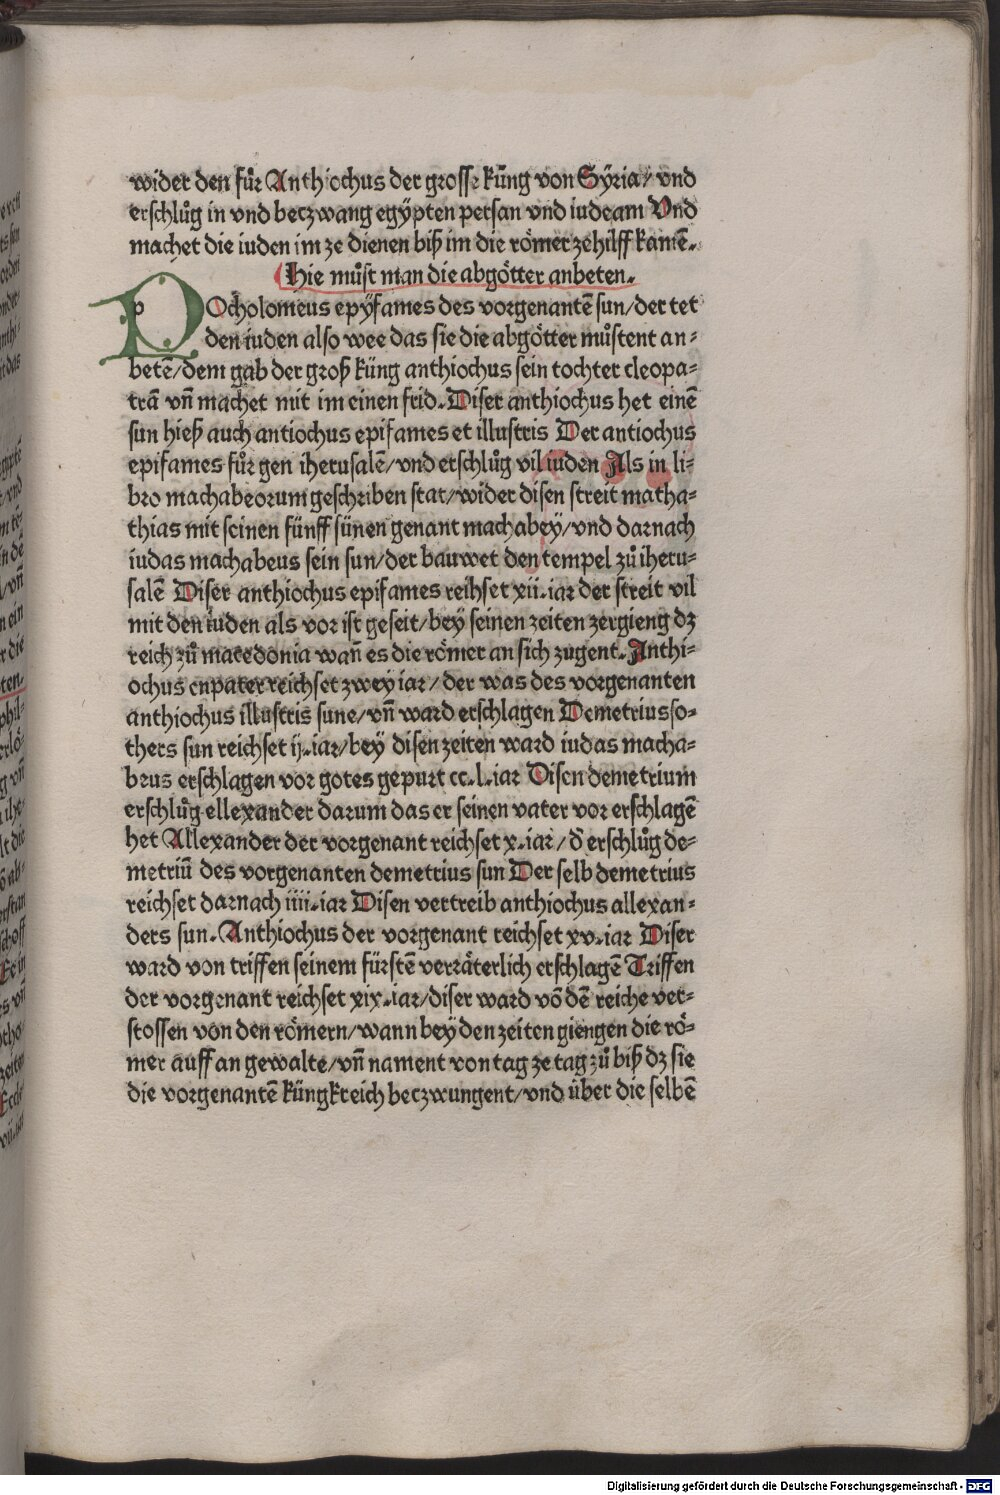 wider den fu̇r Anthiochus der grosse ku̇ng von Sÿria/ vnd
erschlůg in vnd beczwang egÿpten persan vnd iudeam Vnd
machet die iuden im ze dienen biß im die römer zehilff kamē.
Hie můst man die abgötter anbeten.
POtholomeus epÿfames des vorgenantē sun/der tet
den iuden also wee das sie die abgötter můstent an⸗
betē/dem gab der groß küng anthiochus sein tochter cleopa⸗
trā vn̄ machet mit im einen frid. Diser anthiochus het einē
sun hieß auch antiochus epifames et illustris Der antiochus
epifames fůr gen iherusalē/vnd erschlůg vil iuden Als in li⸗
bro machabeorum geschriben stat/wider disen streit matha⸗
thias mit seinen fünff sünen genant machabey/vnd darnach
iudas machabeus sein sun/der bauwet den tempel zů iheru⸗
salē Diser anthiochus epifames reihset xii.iar der streit vil
mit den iuden als vor ist geseit/bey seinen zeiten zergieng dz
reich zů macedonia wan̄ es die römer an sich zugent. Anthi⸗
ochus enpater reichset zwey iar/der was des vorgenanten
anthiochus illustris sune/vn̄ ward erschlagen Demetrius so⸗
thers sun reichset ij.iar/bey disen zeiten ward iudas macha⸗
beus erschlagen vor gotes gepurt cc.l.iar Disen demetrium
erschlůg ellexander darum das er seinen vater vor erschlagē
het Allexander der vorgenant reichset x.iar/ d̄ erschlůg de⸗
metriū des vorgenanten demetrius sun Der selb demetrius
reichset darnach iiii.iar Disen vertreib anthiochus allexan⸗
ders sun. Anthiochus der vorgenant reichset xv.iar Diser
ward von triffen seinem fürstē verräterlich erschlagē Triffen
der vorgenant reichset xix.iar/diser ward vō dē reiche ver⸗
stossen von den römern/wann bey den zeiten giengen die rö⸗
mer auff an gewalte/vn̄ nament von tag ze tag zů biß dz sie
die vorgenantē küngkreich beczwungent/vnd über die selbē
Digitalisierung gefördert durch die Deutsche Forschungsgemeinschaft - DFG